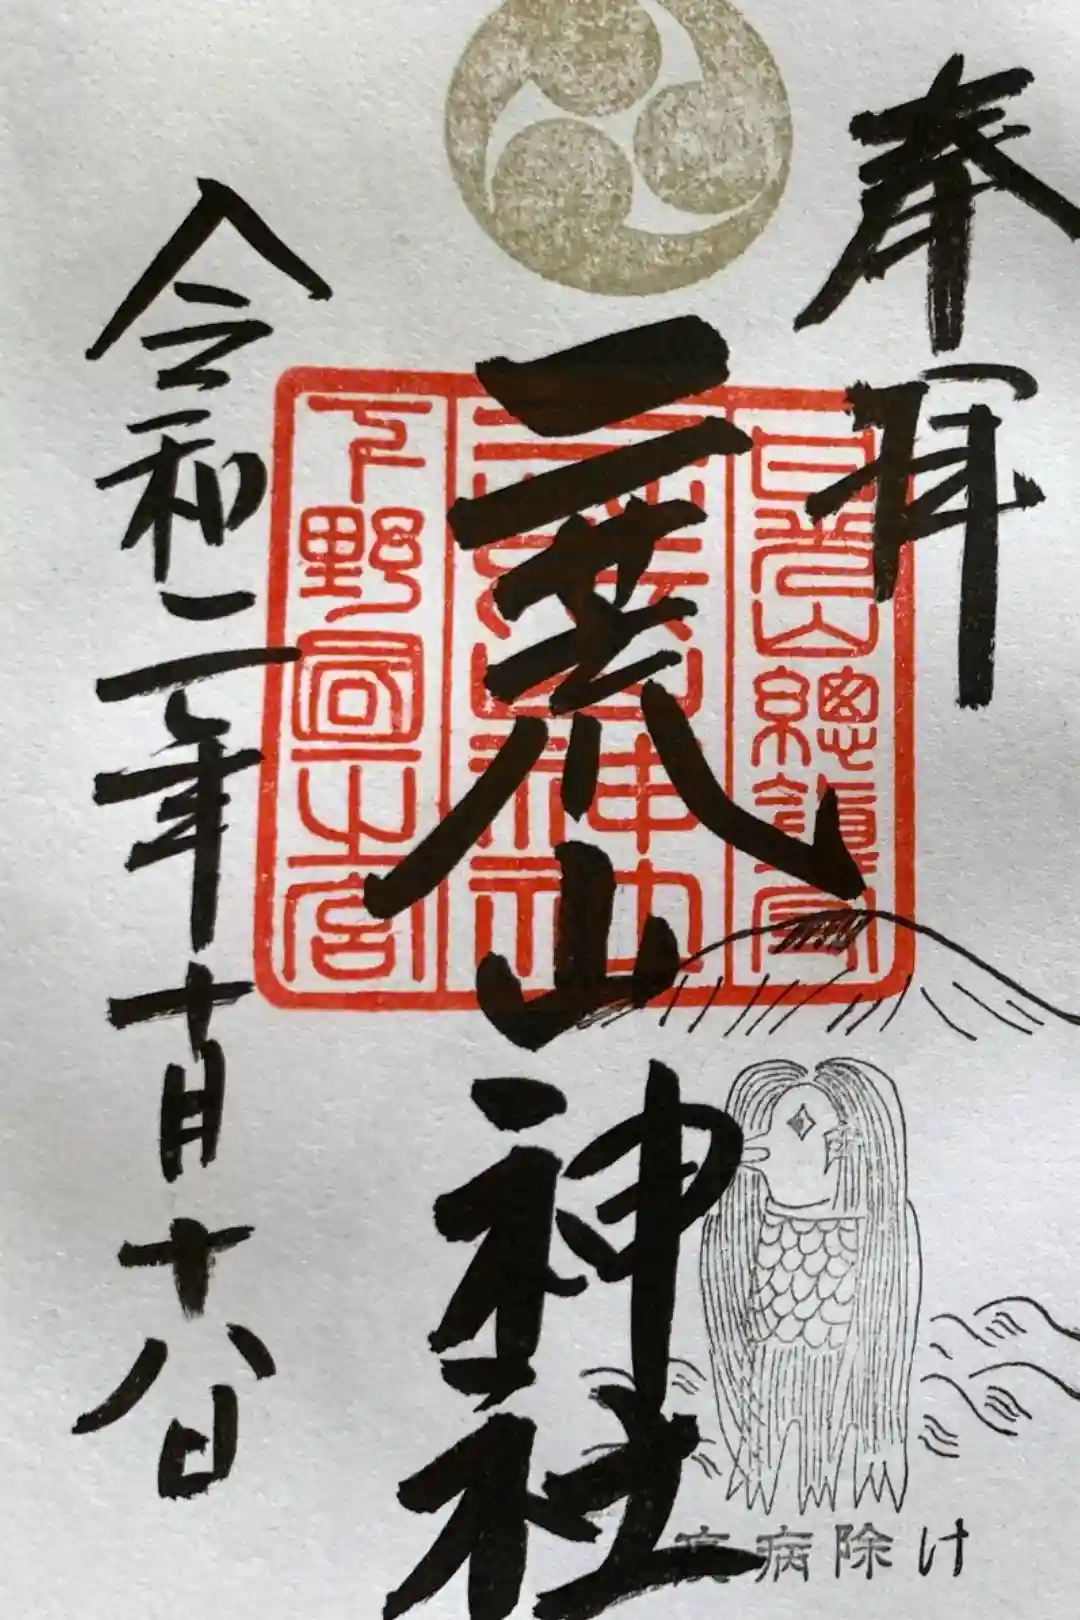 奉拝
日光山總鎮守
二荒山神社
二荒山神社
下野國一之宮
令和二年十月十八日
疫病除け